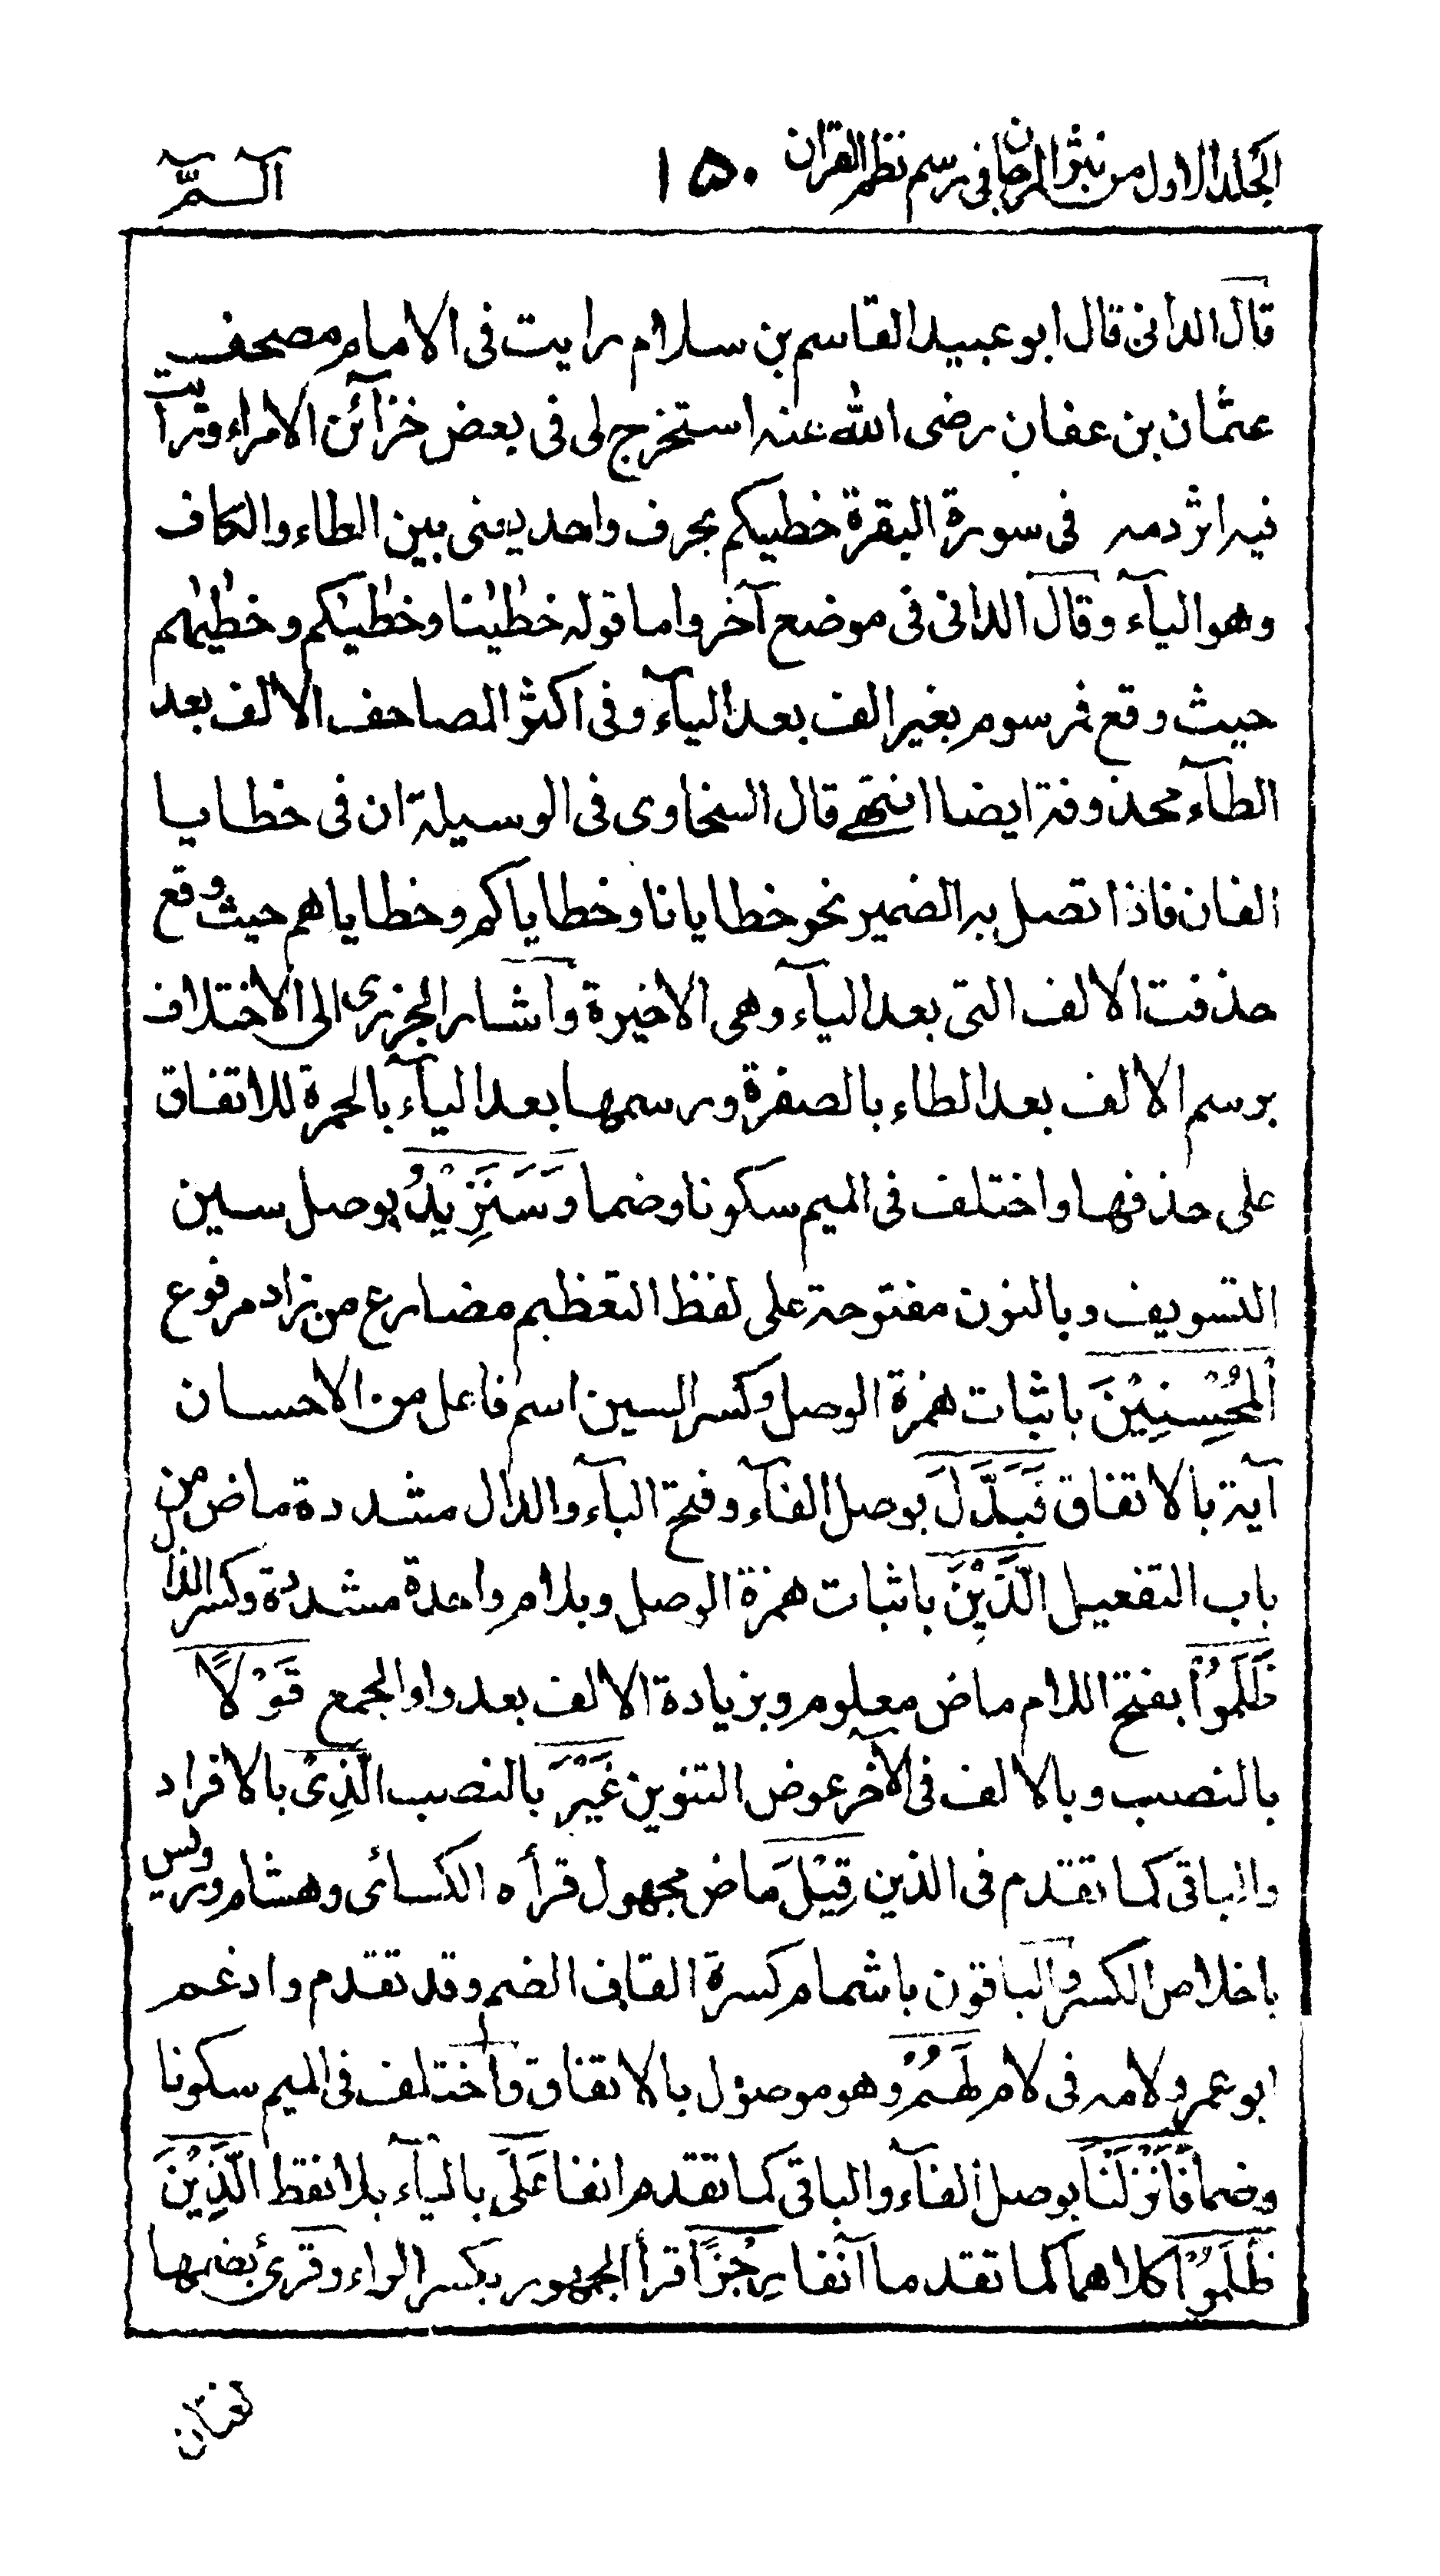 الجلد الاول من نثر المرجان فی رسم نظم القران ١٥٠ آلـــمّٓ
قال الدانی قال ابو عبید القاسم بن سلام رایت فی الامام مصحف
عثمان بن عفان رضی الله عنه استخرج لی فی بعض خزآئن الامراء ورأیت
فیه اثر دمه فی سورة البقرة خطیکم بحرف واحد یعنی بین الطاء والکاف
وهو الیآء وقال الدانی فی موضع آخر واما قوله خطٰیٰنا وخطٰیٰکم وخطٰیٰهم
حیث وقع فمرسوم بغیر الف بعد الیآء وفی اکثر المصاحف الالف بعد
الطآء محذوفة ایضا انتهے قال السخاوی فی الوسیلة ان فی خطایا
الفان فاذا تصل به الضمیر نحو خطایانا وخطایاکم وخطایاهم حیث وقع
حذفت الالف التی بعد الیآء وهی الاخیرة وآشار الجزری الی الاختلاف
برسم الالف بعد الطاء بالصفرة ورسمها بعد الیآء بالحمرة للاتفاق
علی حذفها واختلف فی المیم سکونا وضما وَسَنَزِیْدُ بوصل سین
التسویف وبالنون مفتوحة علی لفظ التعظیم مضارع من زاد مرفوع
اَلْمُحْسِنِیْنَ باثبات همزة الوصل وکسر السین اسم فاعل من الاحسان
آیة بالاتفاق فَبَدَّلَ بوصل الفآء وفتح البآء والدال مشددة ماض من
باب التفعیل الَّذِیْنَ باثبات همزة الوصل وبلام واحدة مشددة وکسر الذال
ظَلَمُوْا بفتح اللام ماض معلوم وبزیادة الالف بعد واو الجمع قَوْلًا
بالنصب وبالالف فی الآخر عوض التنوین غَیْرَ بالنصب الَّذِیْ بالافراد
والباقی کما تقدم فی الذین قِیْلَ ماض مجهول قرأه الکسائی وهشام ورویس
باخلاص الکسر والباقون باشمام کسرة القاف الضم وقد تقدم وادغم
ابو عمرو لامه فی لام لَهُمْ وهو موصول بالاتفاق وآختلف فی المیم سکونا
وضما فَاَنْزَلْنَا بوصل الفآء والباقی کما تقدم انفا عَلَی بالیآء بلا نقط الَّذِیْنَ
ظَلَمُوْا کلاهما کما تقدما آنفا رِجْزًا قرأ الجمهور بکسر الراء وقرئ بضمها
لغتان